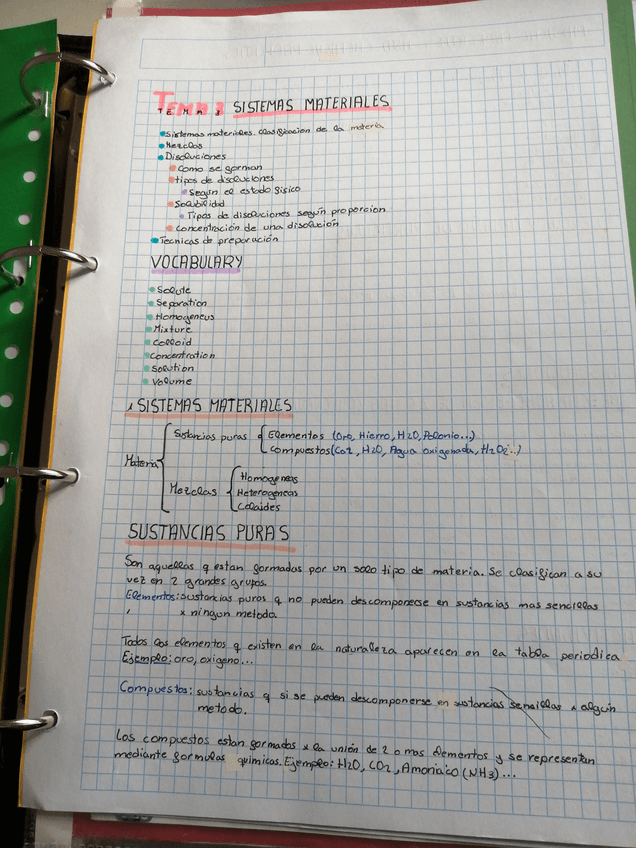 TEMA 3 SISTEMAS MATERIALES
Sistemas materiales. Clasificacion de la materia
Mezclas
Disoluciones
Como se forman
tipos de disoluciones
Según el estado fisico
Solubilidad
Tipos de disoluciones según proporcion
Concentración de una disolución
Tecnicas de preparación
VOCABULARY
Solute
Separation
Homogeneus
Mixture
Colloid
Concentration
Solution
Volume
SISTEMAS MATERIALES
Sustancias puras Elementos (Oro, Hierro, H2O, Polonio...)
Compuestos (Co2, H2O, Agua oxigenada, H2O2...)
Materia
Mezclas
Homogeneas
Heterogeneas
Coloides
SUSTANCIAS PURAS
Son aquellas q estan formadas por un solo tipo de materia. Se clasifican a su
vez en 2 grandes grupos.
Elementos: sustancias puras q no pueden descomponerse en sustancias mas sencillas
x ningun metodo.
Todos los elementos q existen en la naturaleza aparecen en la tabla periodica
Ejemplo: oro, oxigeno...
Compuestos: sustancias q si se pueden descomponerse en sustancias sencillas x algún
metodo.
Los compuestos estan formados x la unión de 2 o mas elementos y se representan
mediante formulas quimicas. Ejemplo: H2O, CO2, Amoniaco (NH3)...